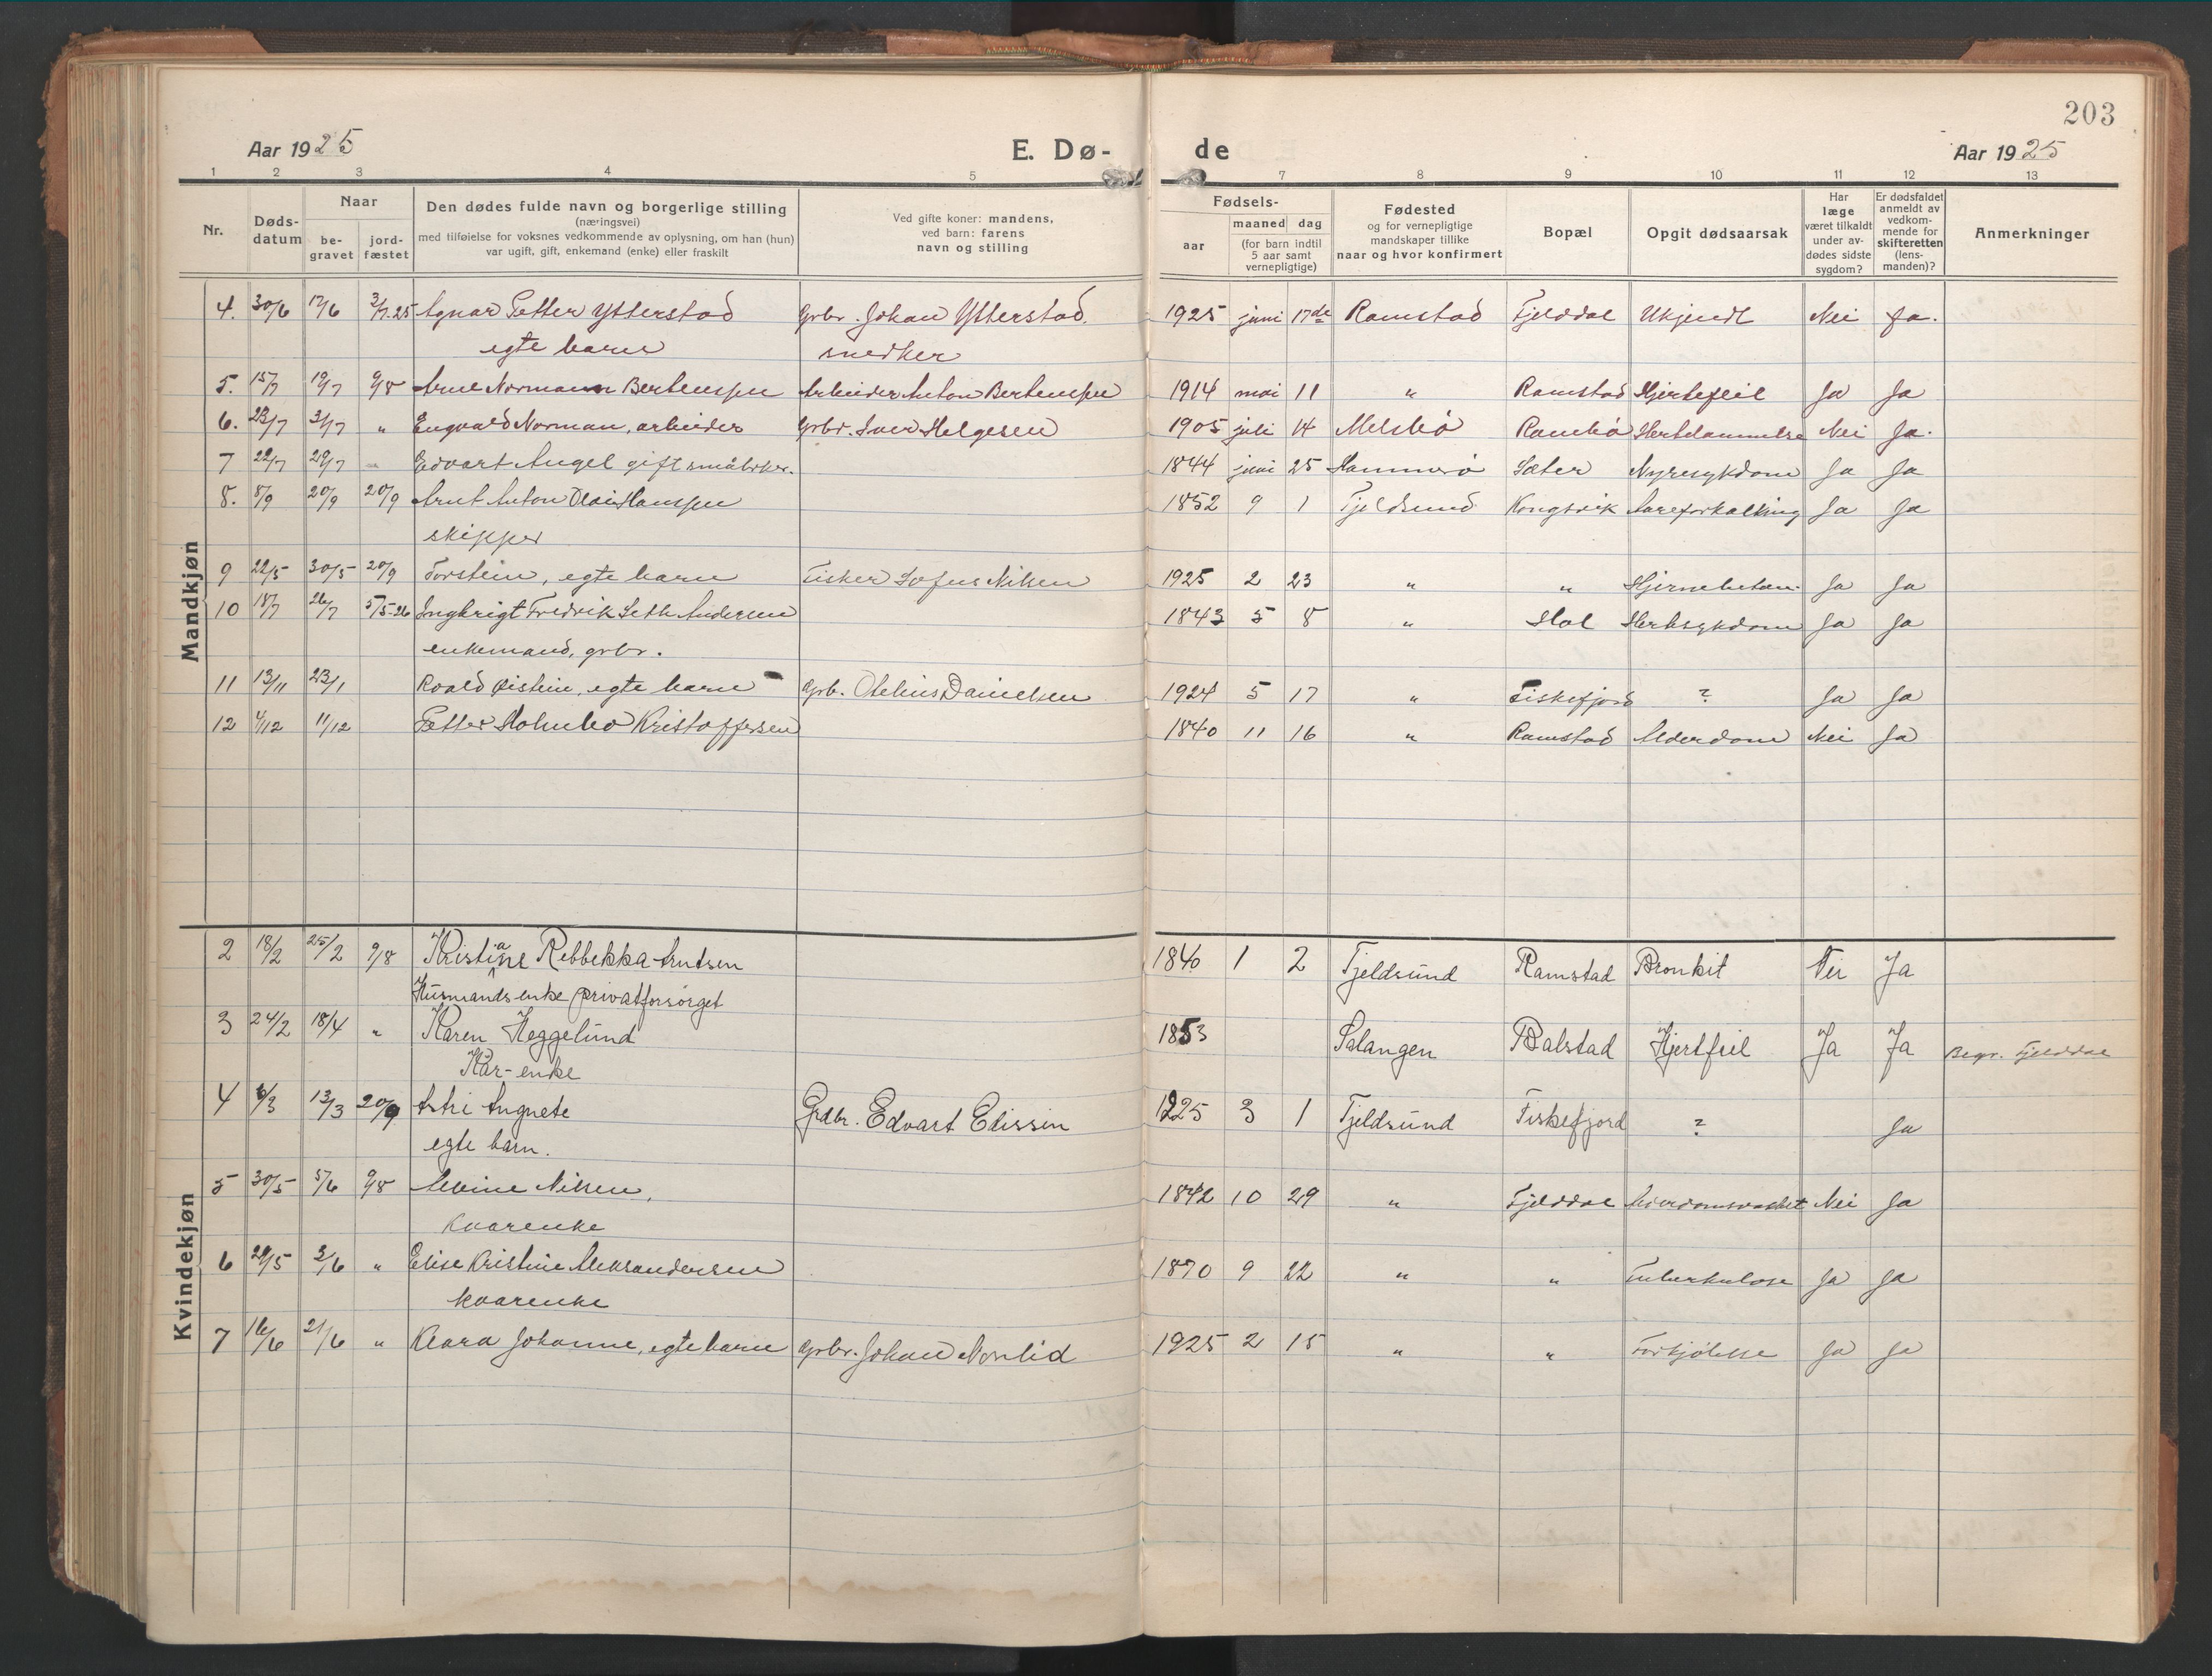 203
Aar 1925 E. Dø- de Aar 1925
1 2 3 4 5 7 8 9 10 11 12 13
Nr.
Døds-datum
Naar
be-gravet
jord-fæstet
Den dødes fulde navn og borgerlige stilling
(næringsvei)
med tilføielse for voksnes vedkommende av oplysning, om han (hun)
var ugift, gift, enkemand (enke) eller fraskilt
Ved gifte koner: mandens,
ved barn: farens
navn og stilling
Fødsels-
aar
maaned dag
(for barn indtil
5 aar samt
vernepligtige)
Fødested
og for vernepligtige
mandskaper tillike
naar og hvor konfirmert
Bopæl
Opgit dødsaarsak
Har
læge
været tilkaldt
under av-
dødes sidste
sygdom?
Er dødsfaldet
anmeldt av
vedkom-
mende for
skifteretten
(lens-
manden)?
Anmerkninger
Mandkjøn
4. 30/6 17/6 3/7.25 Agnar Petter Ytterstad Grbr. Johan Ytterstad. 1925 juni 17de Ramstad Fjelddal Ukjendt Nei Ja.
egte barn snedker
5. 15/7 19/7 9/8 Arne Normann Bertenssen Arbeider Anton Bertenssen 1914 mai 11 " Ramstad Hjertefeil Ja Ja
6. 23/7 31/7 " Engvald Norman, arbeider Grbr. Iver Helgesen 1905 juli 14 Melsbø Rambø Hertelammelse Nei Ja.
7 22/7 29/7 " Edvart Angel gift småbrker. 1844 juni 25 Hammerø Sæter Nyresykdom Ja Ja
8. 8/9 20/9 20/9 Arnt Anton Olai Hanssen 1852 9 1 Tjeldsund Kongsvik Aareforkalking Ja Ja
skipper
9 22/5 30/5 20/9 Torstein, egte barn Fisker Sofus Nilsen 1925 2 23 " " Hjernebetæn. Ja Ja
10 18/7 26/7 5/5-26 Ingbrigt Fredrik Seth Andersen 1843 5 8 " Hol Hertesykdom Ja Ja
enkemand, grbr.
11 13/11 23/1 Roald Øistein, egte barn Grb. Otelius Danielsen 1924 5 17 " Fiskefjord ? Ja Ja
12 4/12 11/12 Petter Holmbo Kristoffersen 1840 11 16 " Ramstad Alderdom Nei Ja
Kvindekjøn
2 18/2 25/2 9/8 Kristiane Rebbekka Arntsen 1840 1 2 Tjeldsund Ramstad Bronkit Nei Ja
Husmandsenke privatforsørget
3 24/2 18/4 " Karen Heggelund 1853 Salangen Balstad Hjertfeil Ja Ja Begr. Fjelddal
Kår-enke
4 6/3 13/3 20/9 Astri Angnete Grdbr. Edvart Elissen 1925 3 1 Tjeldsund Fiskefjord ? Ja
egte barn.
5 30/5 5/6 9/8 Alvine Nilsen, 1842 10 29 " Fjelddal Alderdomsvakhet Nei Ja
kvarenke
6 29/5 3/6 " Elise Kristine Aleksandersen 1870 9 22 " " Tuberkulose Ja Ja
kvarenke
7 16/6 21/6 " Klara Johanne, egte barn Grbr. Johan Norlid 1925 2 15 " " Forkjølelse Ja Ja